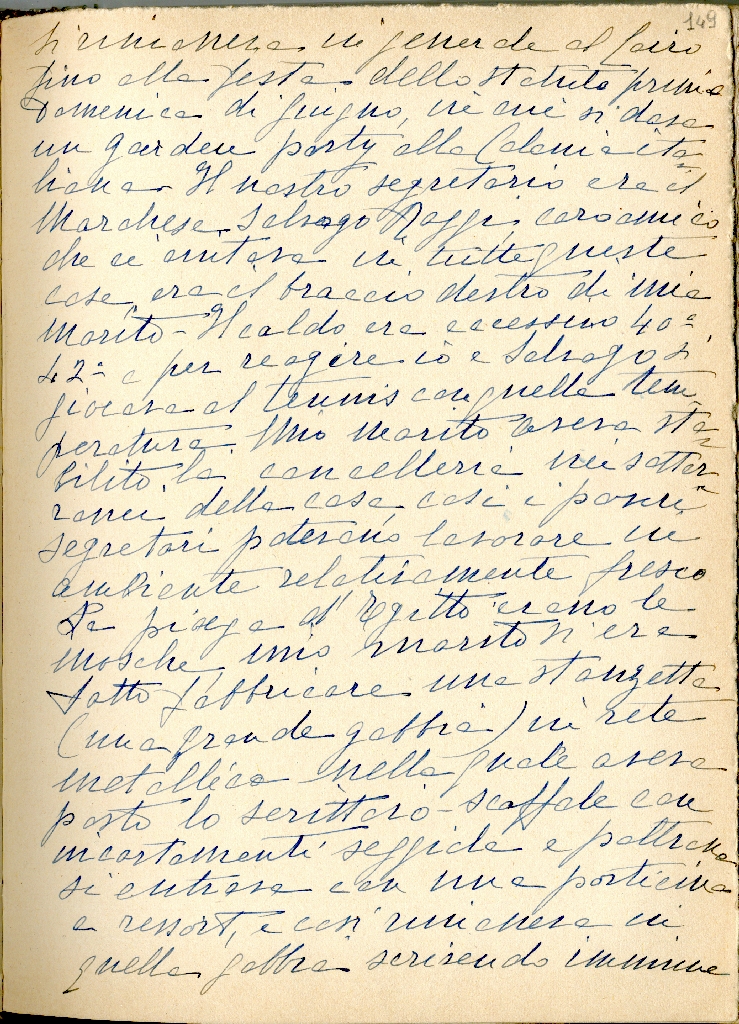 149
si rimaneva in generale al Cairo
fino alla festa dello statuto prima
Domenica di giugno, in cui si dava
un garden party alla Colonia ita=
liana. Il nostro segretario era il
Marchese Salvago Raggi, caro amico
che ci aiutava in tutte queste
cose, era il braccio destro di mio
marito - Il caldo era eccessivo 40°
42° e per reagire io e Salvago si
giocava al tennis con quella tem=
peratura. Mio marito aveva sta=
bilito la cancelleria nei sotter=
ranei della casa, così i poveri
segretari potevano lavorare in
ambiente relativamente fresco
La piaga d'Egitto erano le
mosche mio marito si era
fatto fabbricare una stanzetta
(una grande gabbia) in rete
metallica nella quale aveva
posto lo scrittoio - scaffale con
incartamenti seggiola e poltrona
si entrava con una porticina
a ressort, e così rimaneva in
quella gabbia scrivendo immune